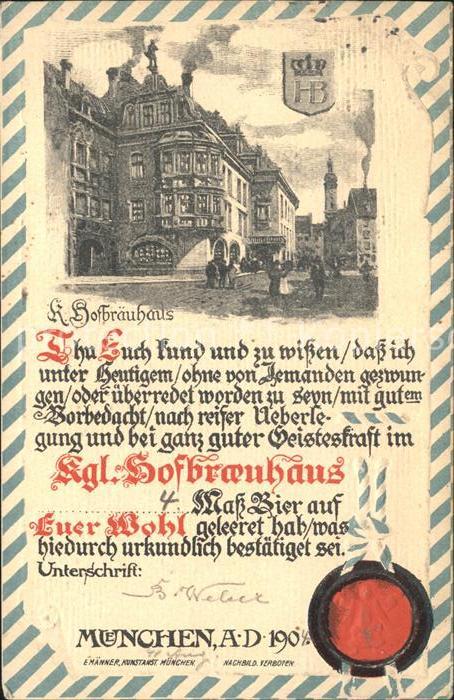 HB
K. Hofbräuhaus
Thu Euch kund und zu wißen/daß ich
unter Heutigem/ohne von Jemanden gezwun-
gen/oder überredet worden zu seyn/mit gutem
Vorbedacht/nach reifer Ueberle-
gung und bei ganz guter Geisteskraft im
Kgl. Hofbræuhaus
4 Maß Bier auf
Euer Wohl geleeret hab/was
hiedurch urkundlich bestätiget sei.
Unterschrift:
B. Weber
MUENCHEN, A·D· 190
E. MÄNNER, KUNSTANST. MÜNCHEN. NACHBILD. VERBOTEN